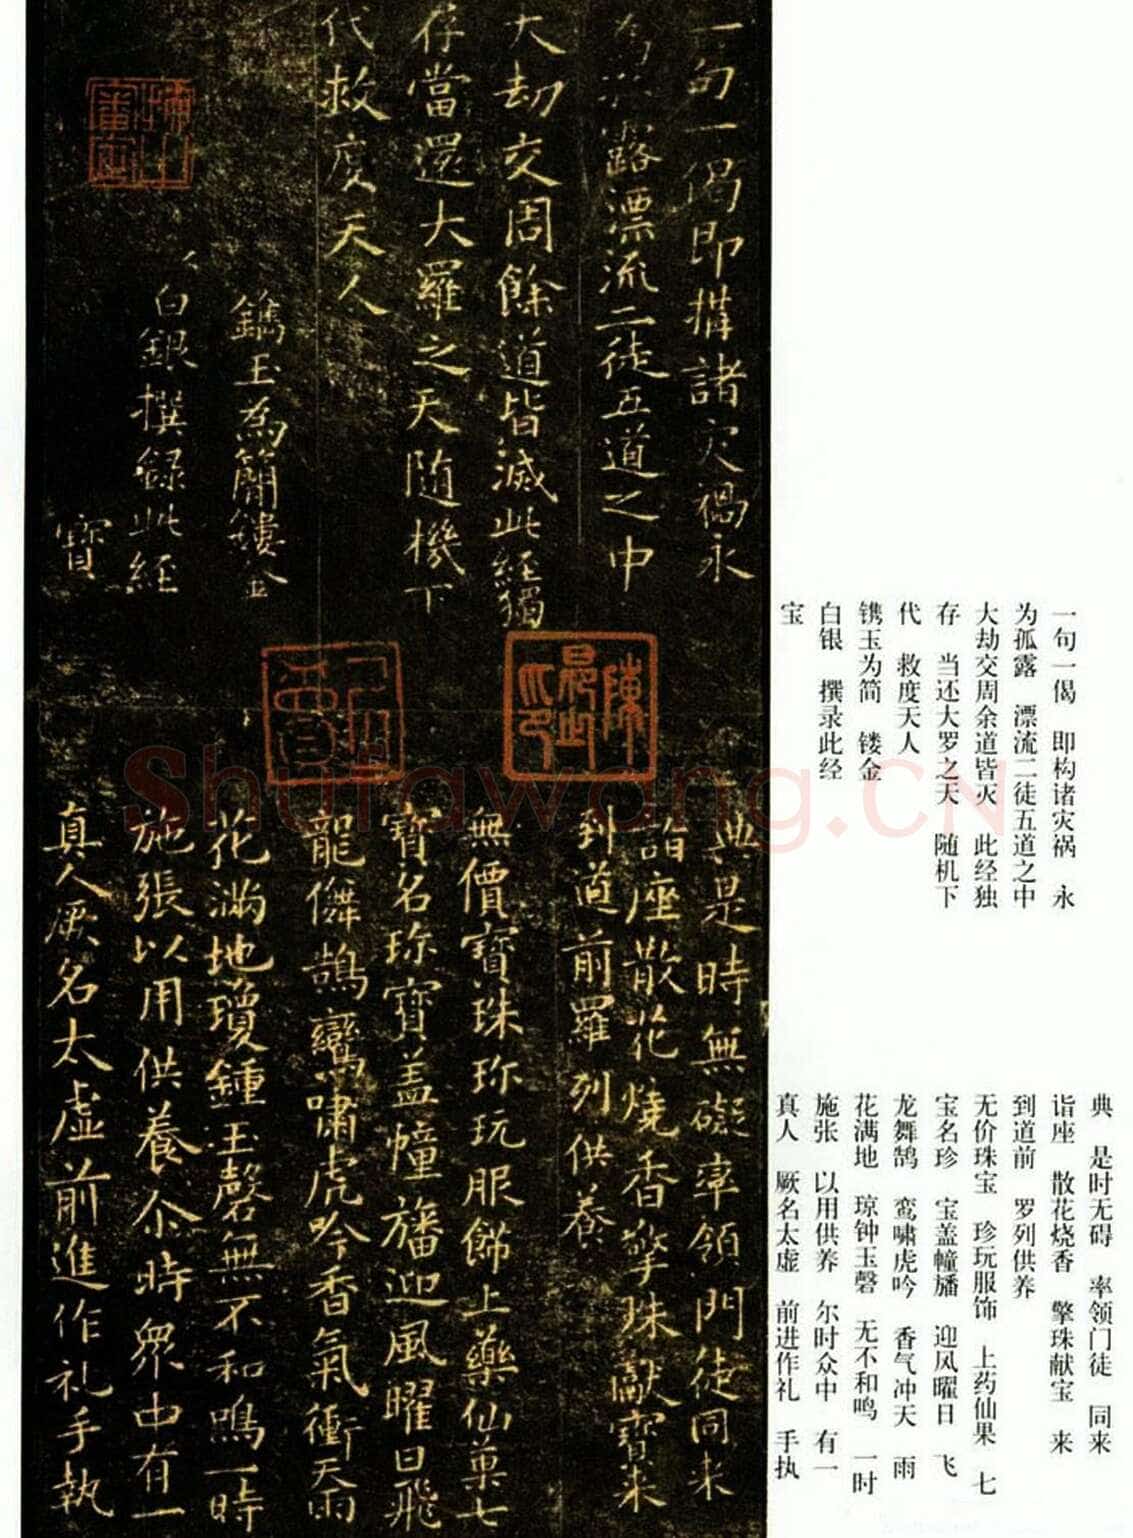 一句一偈即搆諸灾禍永
露漂流二徒五道之中
大劫交周餘道皆滅此経獨
存當還大羅之天随機下
代救度天人
鐫玉為簡鏤金
白銀撰録此経
寳
典是時無礙率領門徒同来
詣座散花燒香擎珠獻寳来
到道前羅列供養
無價寳珠珎玩服飾上藥仙菓七
寳名珎寳盖幢旛迎風曜日飛
龍儛鵠鸞嘯虎吟香氣衝天雨
花滿地瓊鍾玉磬無不和鳴一時
施張以用供養尒時眾中有一
真人厥名太虛前進作礼手執
一句一偈　即构诸灾祸　永
为孤露　漂流二徒五道之中
大劫交周余道皆灭　此经独
存　当还大罗之天　随机下
代　救度天人
镌玉为简　镂金
白银　撰录此经
宝
典　是时无碍　率领门徒　同来
诣座　散花烧香　擎珠献宝　来
到道前　罗列供养
无价珠宝　珍玩服饰　上药仙果　七
宝名珍　宝盖幢旛　迎风曜日　飞
龙舞鹄　鸾啸虎吟　香气冲天　雨
花满地　琼钟玉磬　无不和鸣　一时
施张　以用供养　尔时众中　有一
真人　厥名太虚　前进作礼　手执
Shufawang.CN